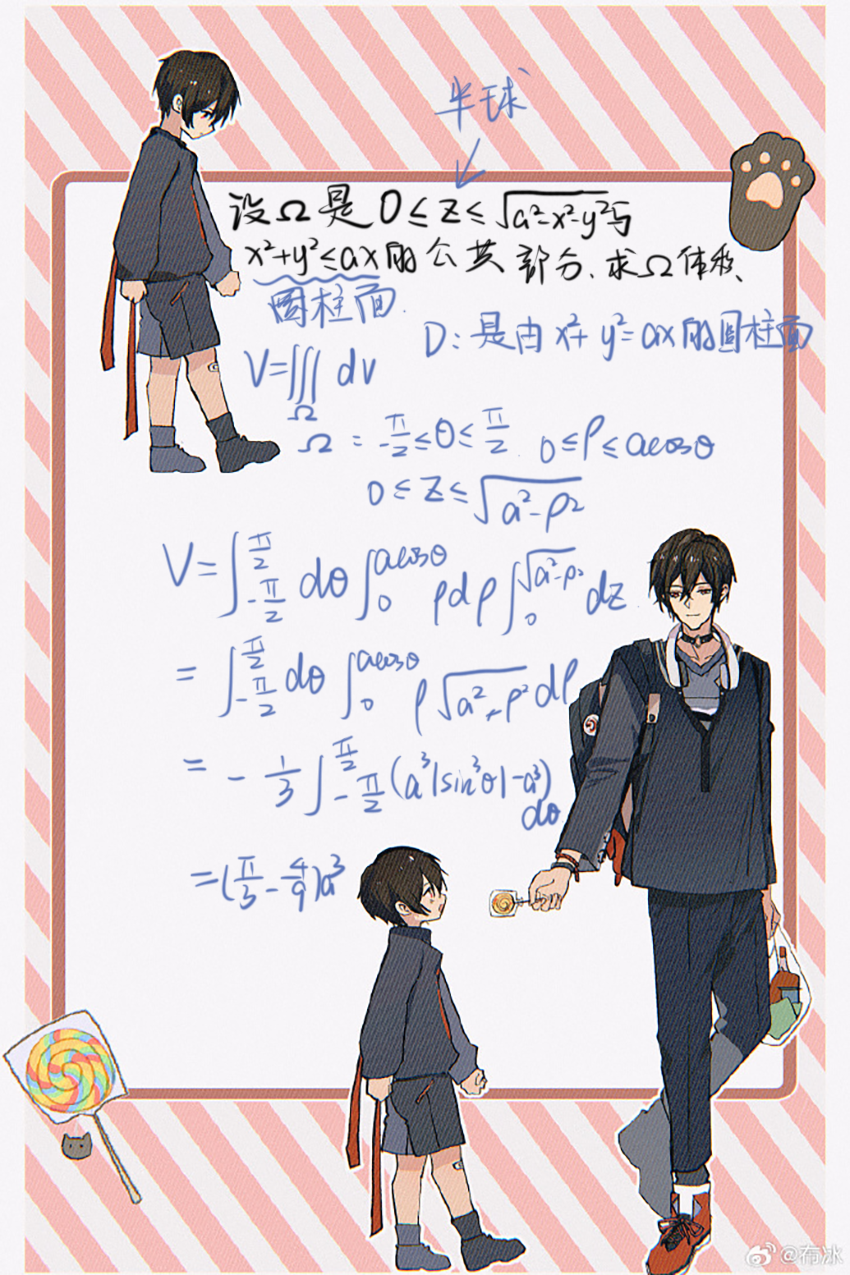 半球
设Ω是 0≤z≤√(a²-x²-y²)与
x²+y²≤ax的公共部分.求Ω体积、
圆柱面.
D:是由x²+y²=ax的圆柱面
V=∭_Ω dv
Ω:-π/2≤θ≤π/2. 0≤ρ≤acosθ
0≤z≤√(a²-ρ²)
V=∫_{-π/2}^{π/2} dθ ∫_0^{acosθ} ρdρ ∫_0^{√(a²-ρ²)} dz
= ∫_{-π/2}^{π/2} dθ ∫_0^{acosθ} ρ√(a²-ρ²) dρ
= -1/3 ∫_{-π/2}^{π/2} (a³|sin³θ|-a³) dθ
=(π/3-4/9)a³
@布冰